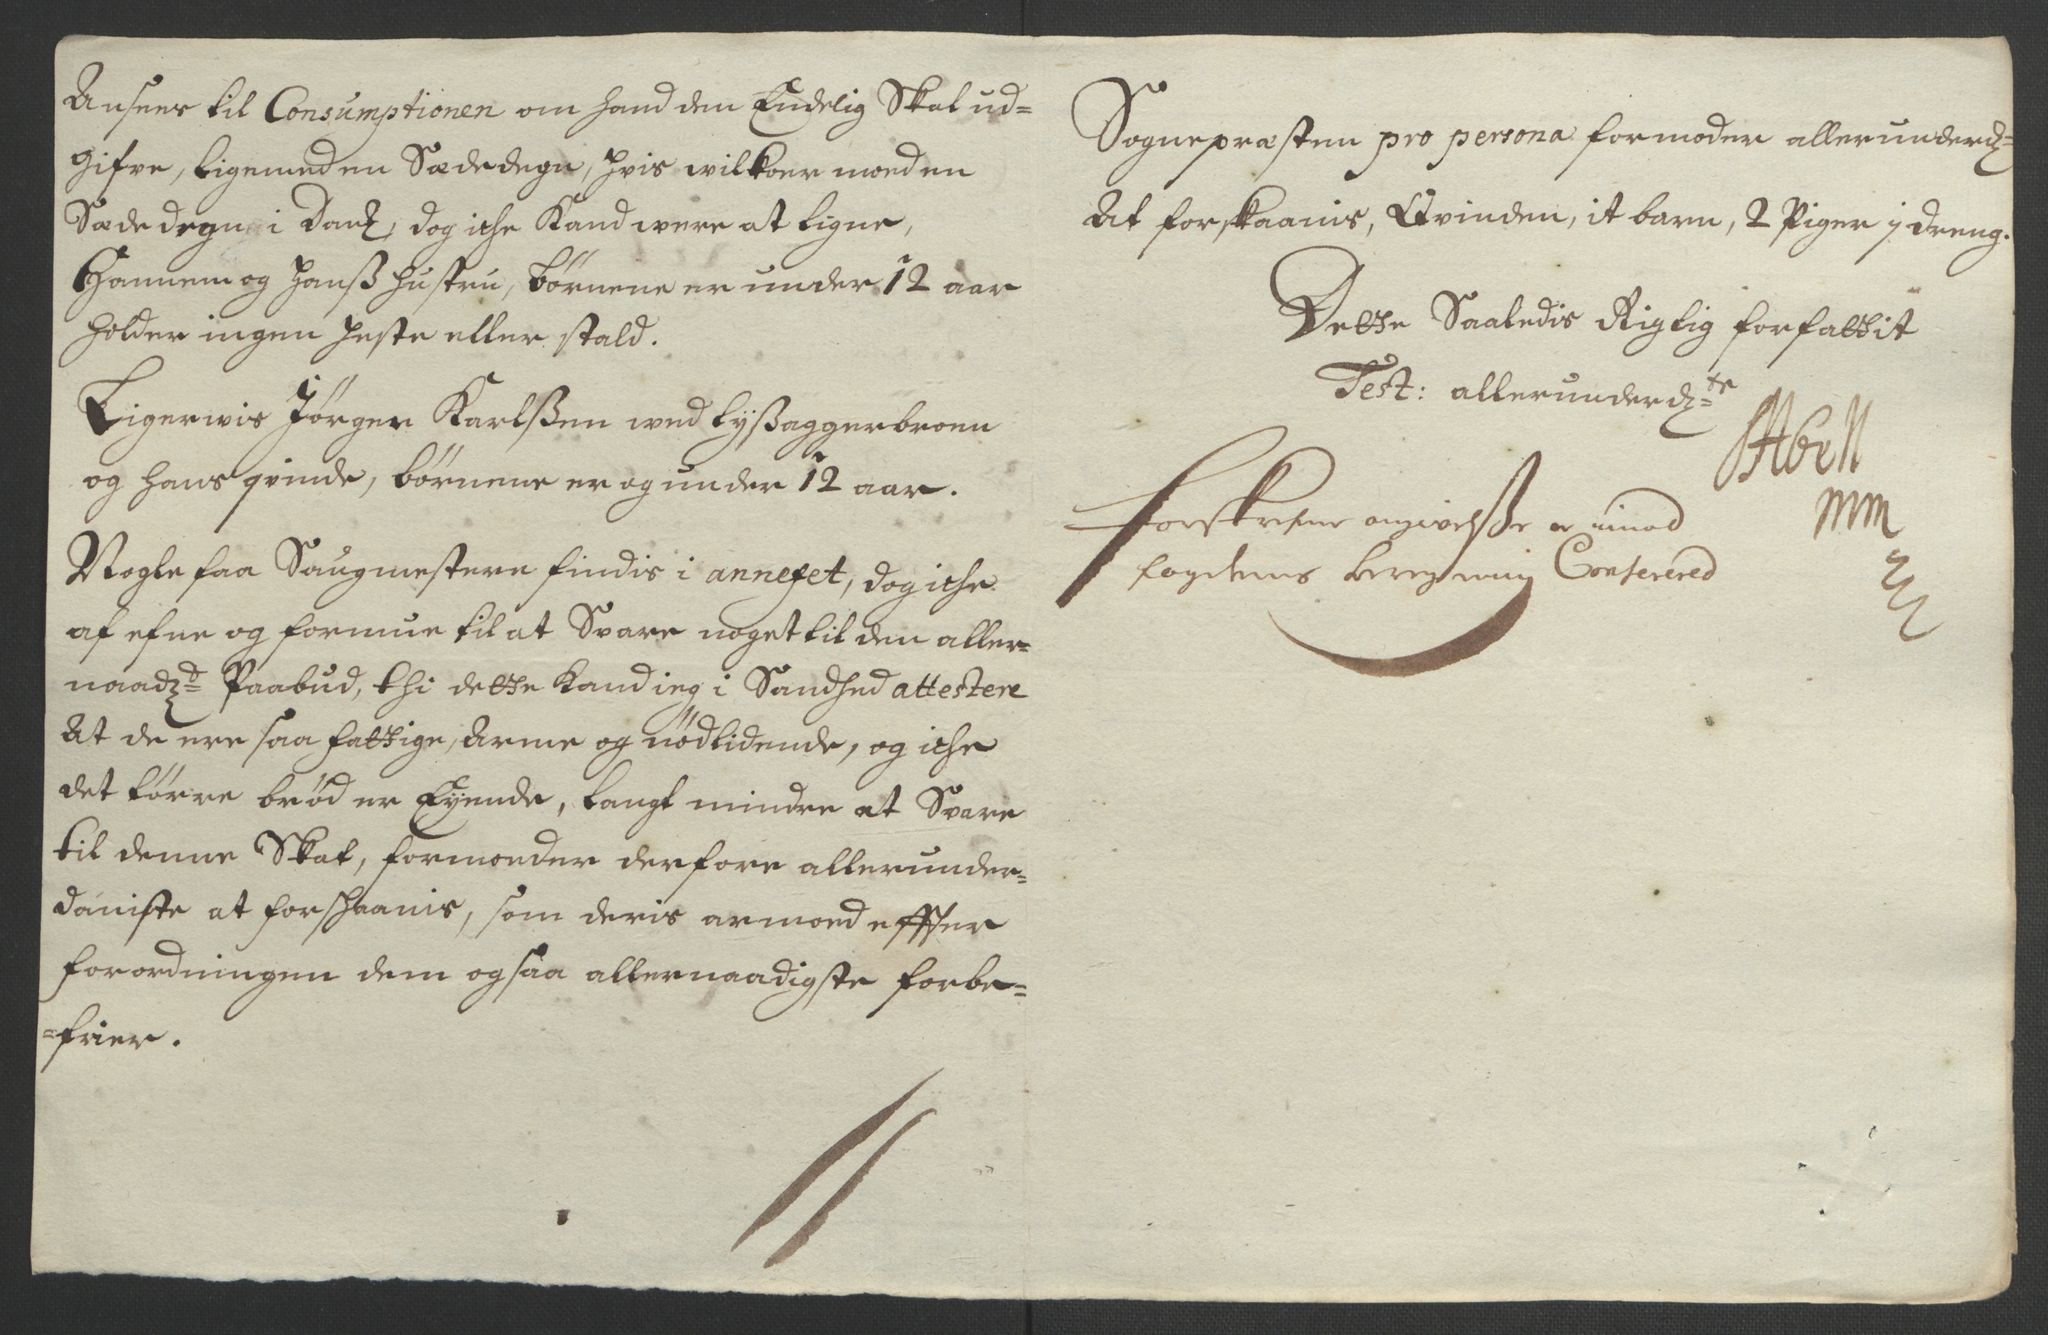 Ansees til Consumptionen om hand den Endelig Skal ud=
gifve, ligemed en Sædedegn, hvis wilkoer med en
Sædedegn i Danm, dog iche Kand were at ligne,
Hannem og hanß hustru, børnene er under 12 aar
holder ingen heste eller stald.
Ligerwis Jørgen Karlßen wed Lyßaggerbroen
og hans qvinde, børnene er og under 12 aar.
Nogle faa Saugmestere findis i annexet, dog iche
af efne og formue til at Svare noget til den aller=
naadgd= Paabud, thi dette Kand ieg i Sandhed attestere
At de ere saa fattige, Arme og nødlidende, og iche
det tørre brød er Eyende, langt mindre at Svare
til denne Skat, formoeder derfore allerunder=
daniste at forschaanis, som deris armoed effter
forordningen dem ogsaa allernaadigste forbe=
=frier.
Sognepræsten pro persona formoder allerunderd=
At forskaanis, Qvinden, it barn, 2 Piger j dreng.
Dette Saaledis Rigtig forfattit
Test: allerunderd=te
Abell
mm
Forskrefne angivelsße er imod
fogdens beregning Conferered